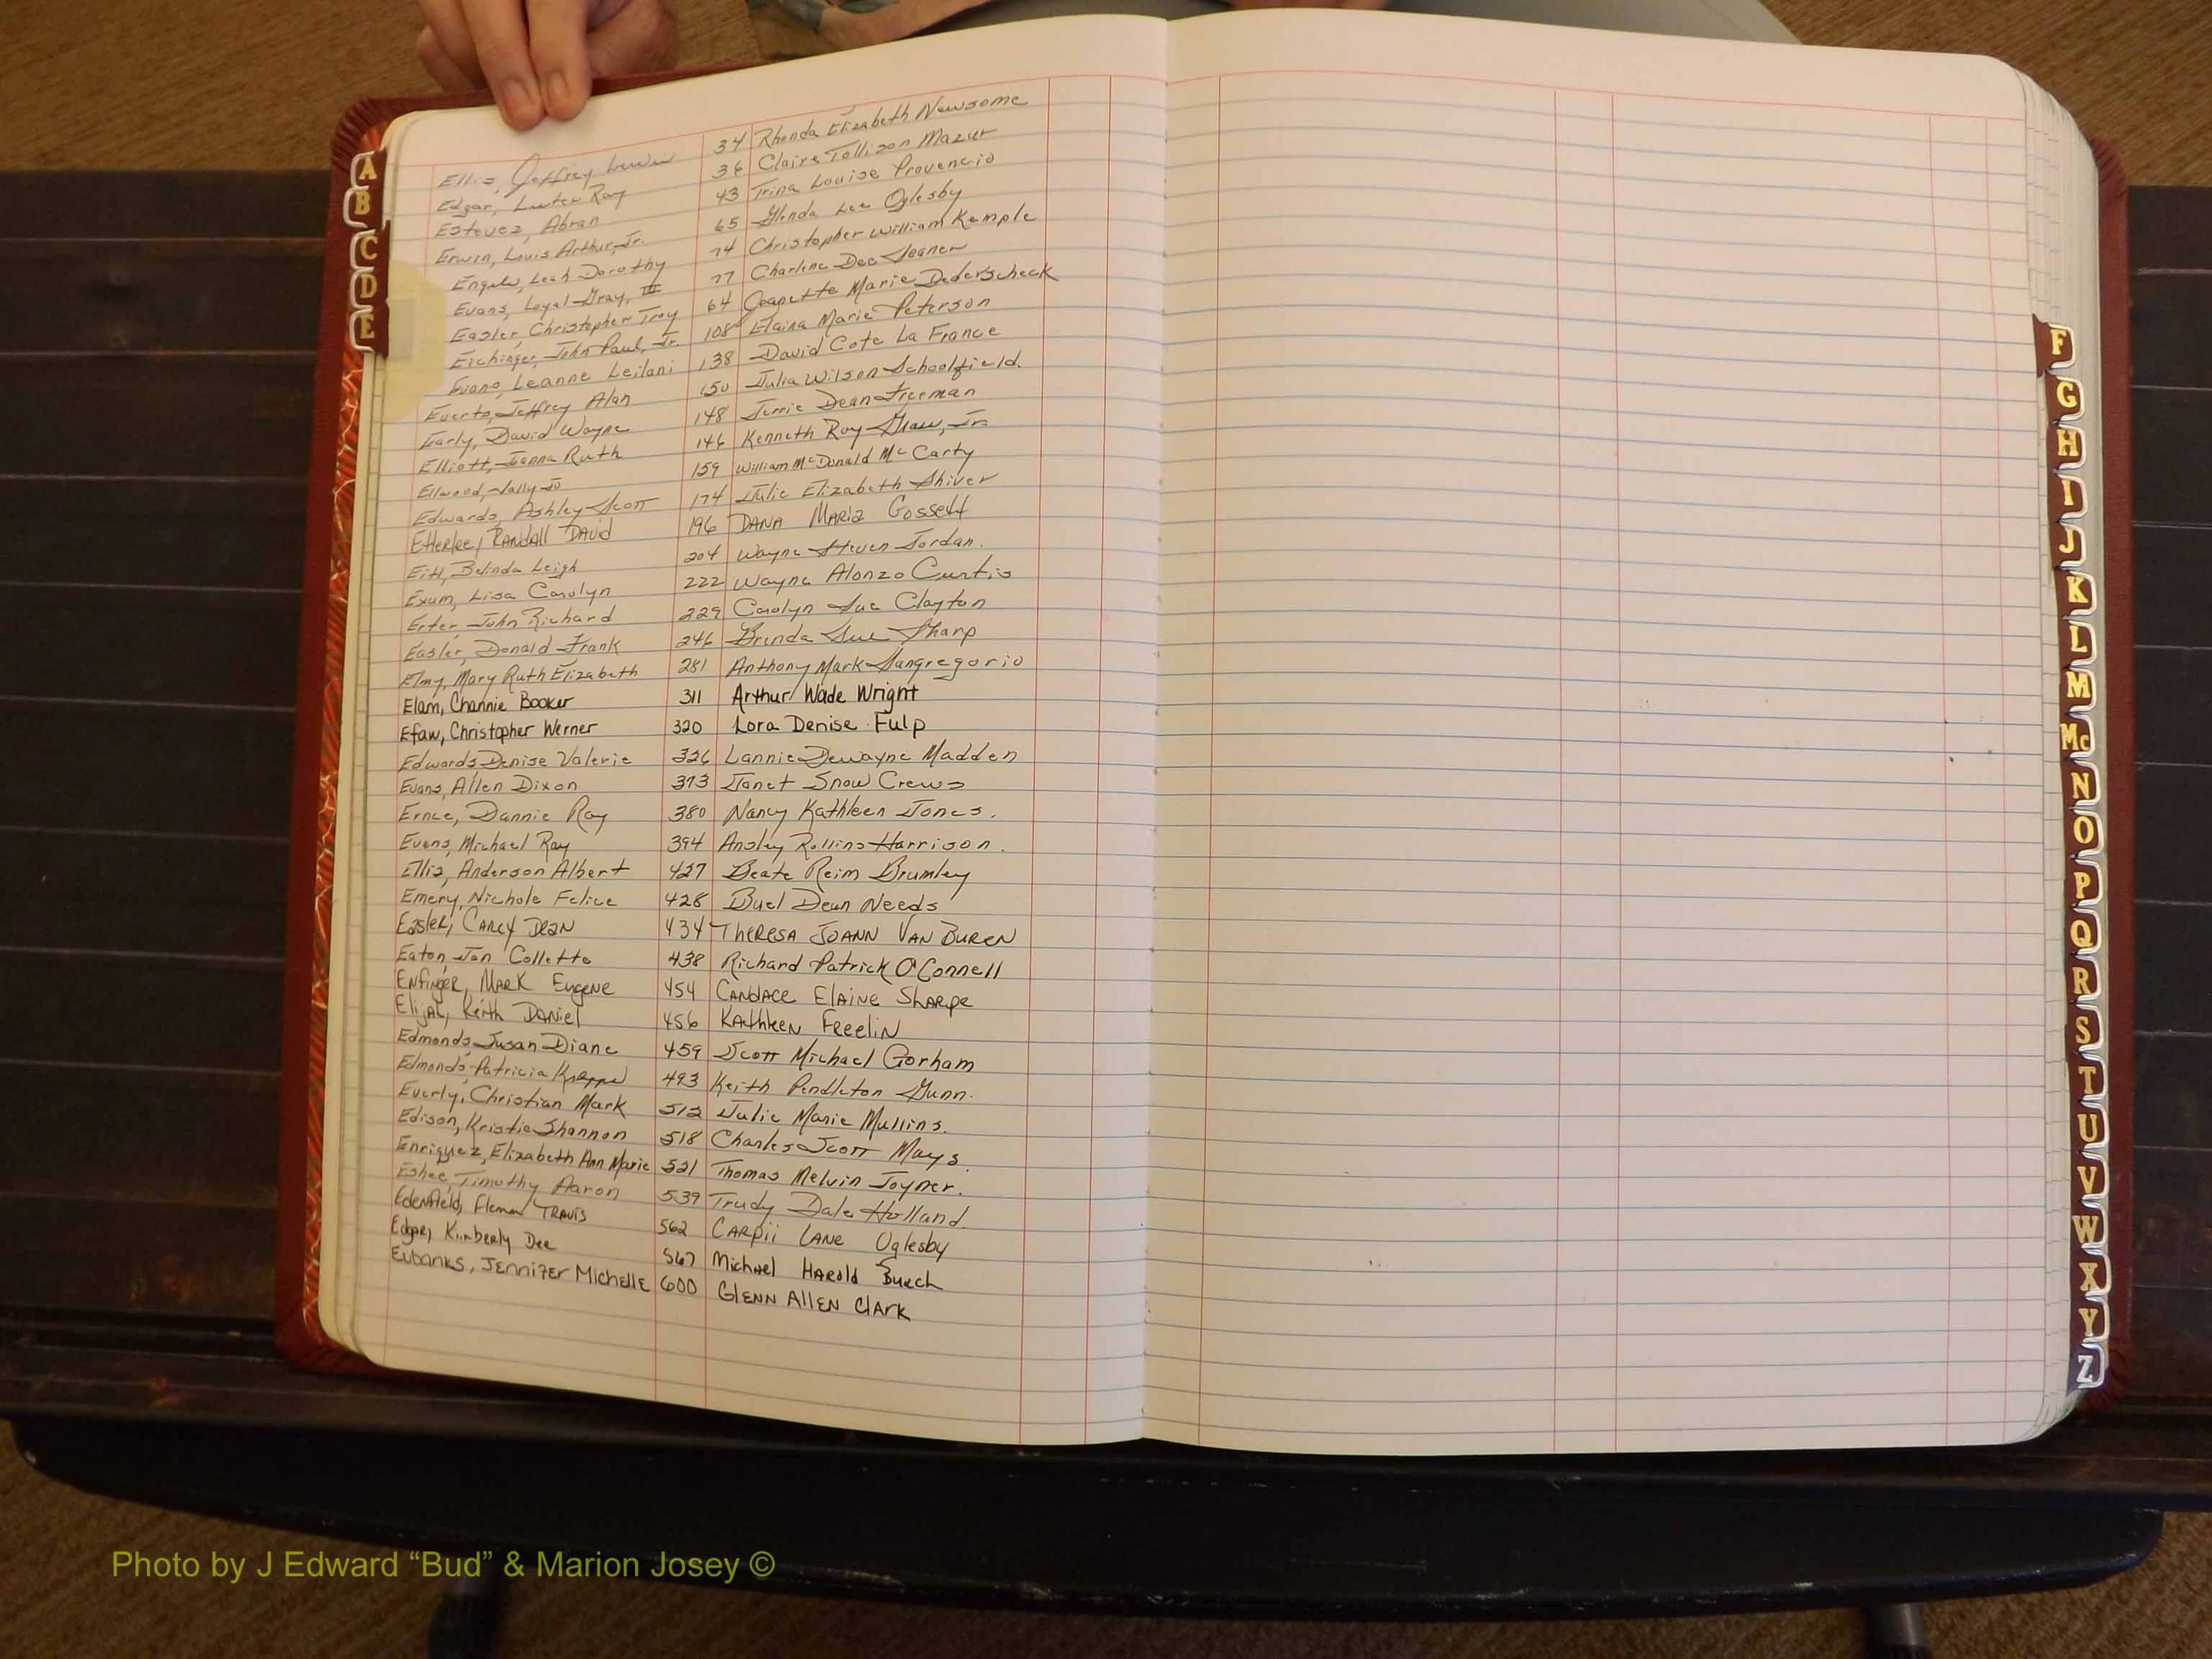 Ellis, Jeffrey Lewis 34 Rhonda Elizabeth Newsome
Edgar, Luther Ray 36 Claire Tollison Mazur
Estevez, Abran 43 Trina Louise Provencio
Erwin, Louis Arthur, Jr. 65 Glenda Lee Oglesby
Engels, Leah Dorothy 74 Christopher William Kemple
Evans, Loyal Gray, III 77 Charline Dee
Easler, Christopher Troy 64 Jeanette Marie Dederscheck
Eichinger, John Paul, Jr. 108 Elaina Marie Peterson
Evans, Leanne Leilani 138 David Cote La France
Everts, Jeffrey Alan 150 Julia Wilson Schoolfield.
Early, David Wayne 148 Jerrie Dean Freeman
Elliott, Janna Ruth 146 Kenneth Roy Jr.
Ellwood, Sally Jo 159 William McDonald McCarty
Edwards, Ashley Scott 174 Julie Elizabeth Shiver
Etterlee, RANdAll DAvid 196 DANA MARIa GossEtt
Eitl, Belinda Leigh 204 Wayne Steven Jordan.
Exum, Lisa Carolyn 222 Wayne Alonzo Curtis
Erter, John Richard 229 Carolyn Sue Clayton
Easler, Donald Frank 246 Brenda Sue Sharp
Elmy, Mary Ruth Elizabeth 281 Anthony Mark Sangregorio
Elam, Channie Booker 311 Arthur Wade Wright
Efaw, Christopher Werner 320 Lora Denise Fulp
Edwards Denise Valerie 326 Lannie Dewayne Madden
Evans, Allen Dixon 373 Janet Snow Crews
Ernce, Dannie Ray 380 Nancy Kathleen Jones.
Evans, Michael Ray 394 Ansley Rollins Harrison.
Ellis, Anderson Albert 427 Beate Reim Brumley
Emery, Nichole Felice 428 Buel Dean Needs
Easler, CArey DeaN 434 THeResA JoANN VAN BuReN
Eaton, Jan Collette 438 Richard Patrick O'Connell
ENfiNgeR, MARK EugeNe 454 CANdAce ElAiNe SHARpe
Elijah, Keith DANiel 456 KAthleeN FReeliN
Edmonds, Susan Diane 459 Scott Michael Gorham
Edmonds, Patricia 493 Keith Pendleton Gunn.
Everly, Christian Mark 512 Julie Marie Mullins.
Edison, Kristie Shannon 518 Charles Scott Mays.
Enriquez, Elizabeth Ann Marie 521 Thomas Melvin Joyner.
Eshee, Timothy Aaron 539 Trudy Dale Holland.
EdenfieLd, TRAVis 562 CARpii LANe Oglesby
Edgar, Kimberly Dee 567 MichAel HARold BuRch
EubANks, JENNifER MichEllE 600 GlENN AllEN ClARK
A
B
C
D
E
F
G
H
I
J
K
L
M
Mc
N
O
P
Q
R
S
T
U
V
W
X
Y
Z
Photo by J Edward “Bud” & Marion Josey ©